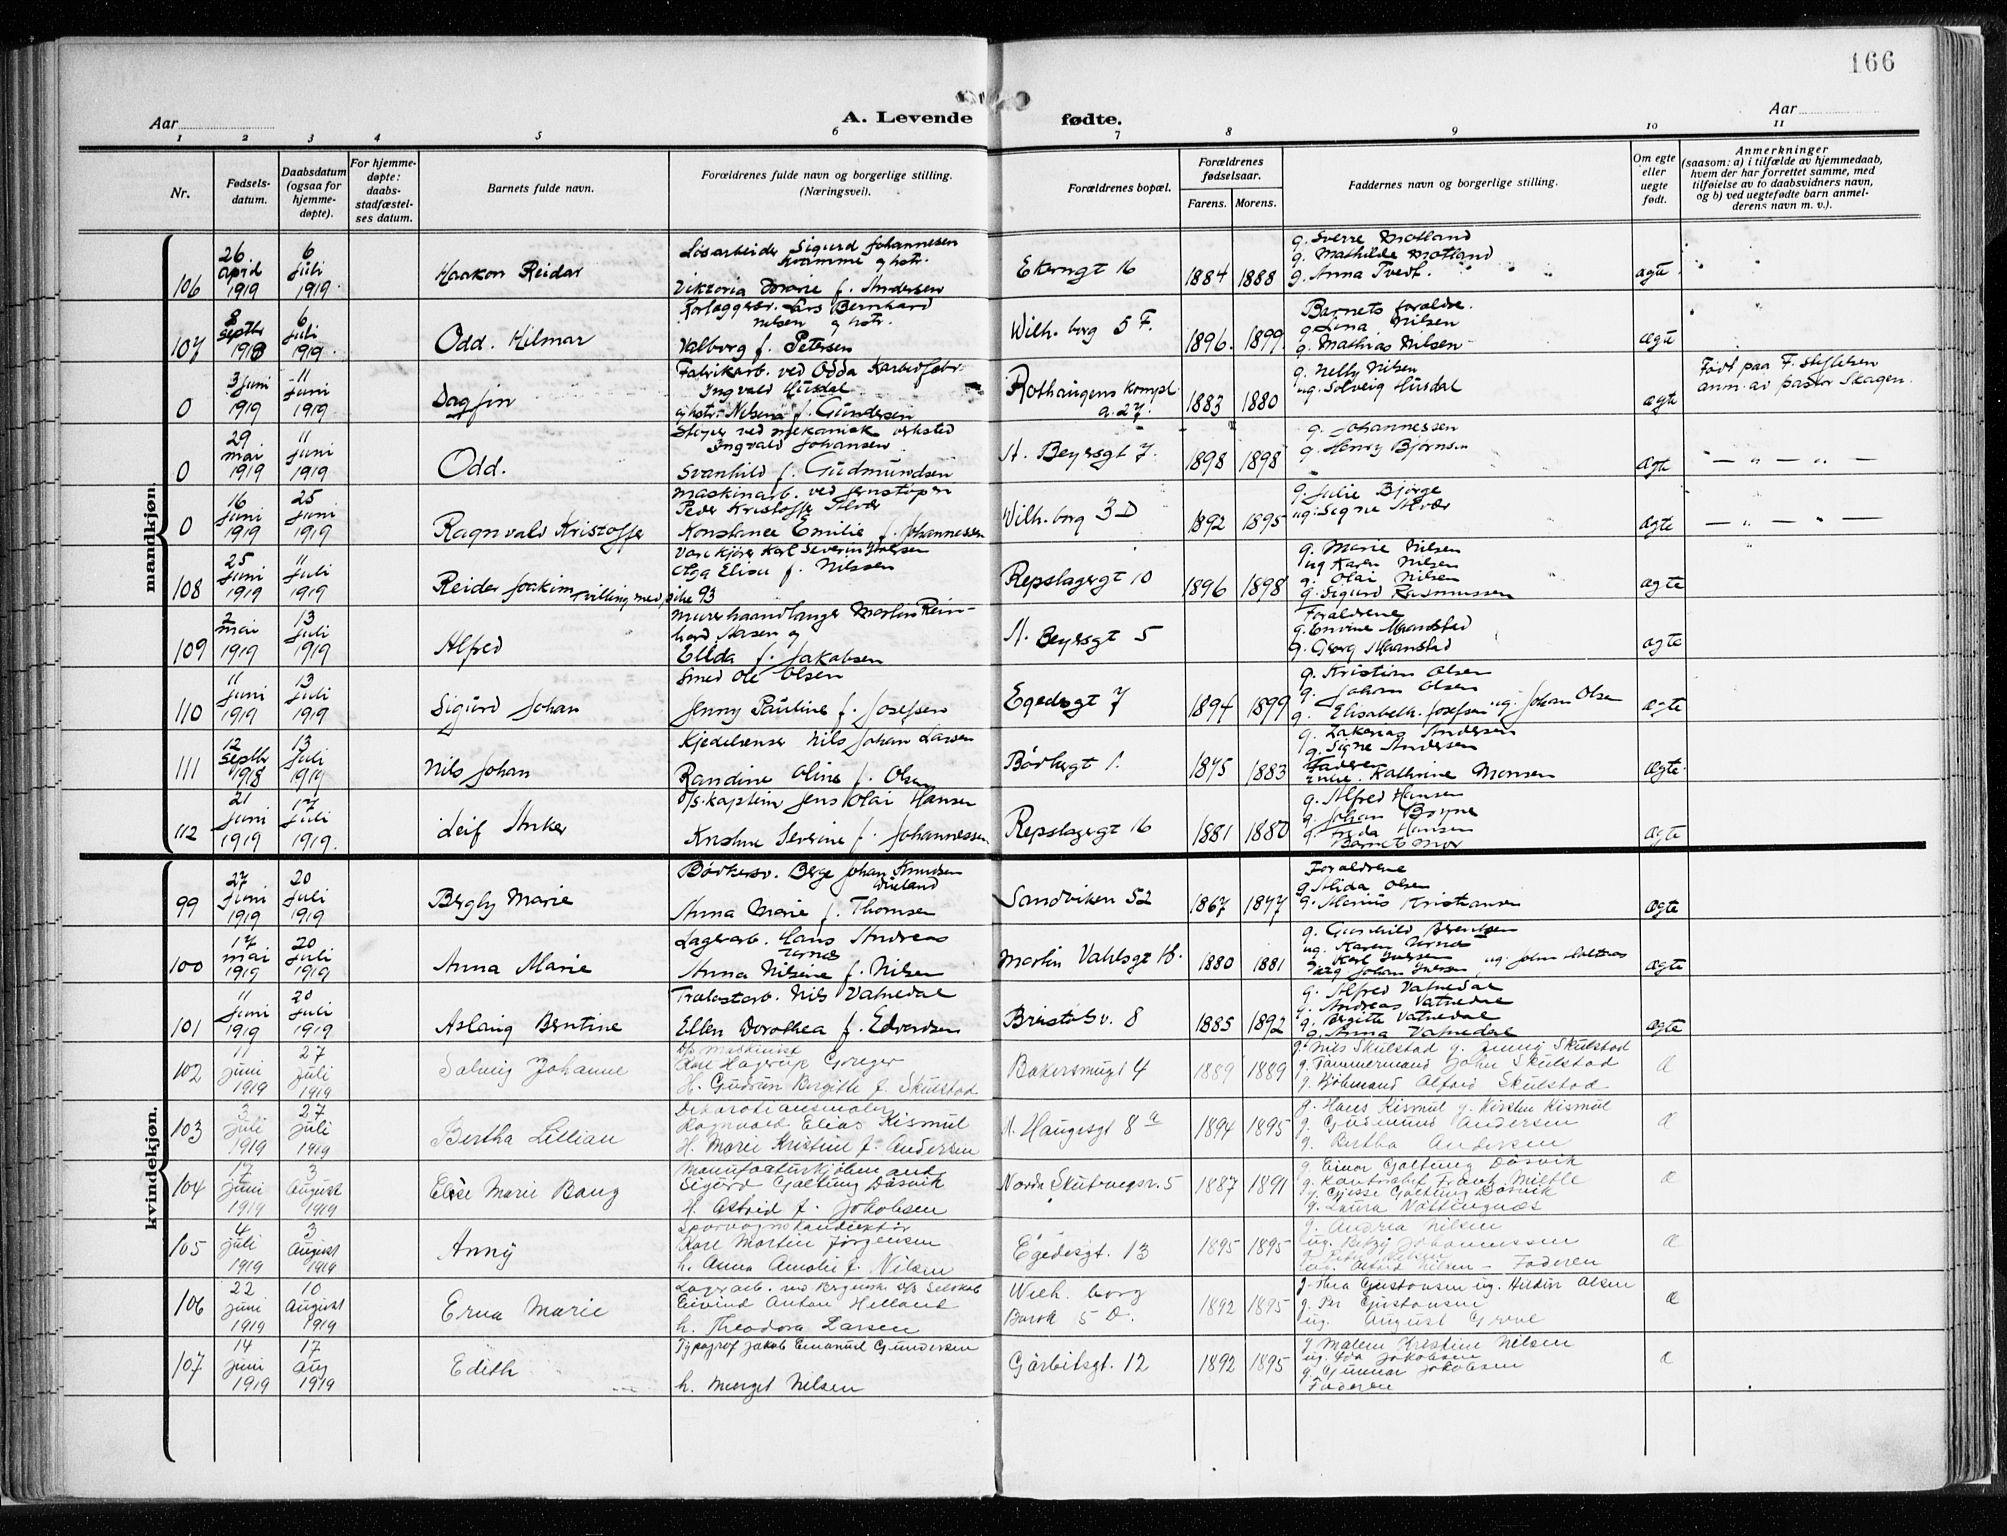 166
A. Levende fødte.
Aar Aar
1 2 3 4 5 6 7 8 9 10 11
Nr.
Fødsels-
datum.
Daabsdatum
(ogsaa for
hjemme-
døpte).
For hjemme-
døpte:
daabs-
stadfæstel-
ses datum.
Barnets fulde navn.
Forældrenes fulde navn og borgerlige stilling.
(Næringsvei).
Forældrenes bopæl.
Forældrenes
fødselsaar.
Farens. Morens.
Faddernes navn og borgerlige stilling.
Om egte
eller
uegte
født.
Anmerkninger
(saasom: a) i tilfælde av hjemmedaab,
hvem der har forrettet samme, med
tilføielse av to daabsvidners navn,
og b) ved uegtefødte barn anmel-
derens navn m. v.).
mandkjøn.
106
26 april 1919
6 juli 1919
Haakon Reidar
Løsarbeider Sigurd Johannesen
Kvamme og hstr.
Viktoria Marie f. Andersen
Ekerngt 16
1884 1888
g. Sverre Motland
g. Mathilde Motland
g. Anna Tvedt.
ægte
107
8 septbr 1918
6 juli 1919
Odd. Hilmar
Rørlægger Lars Bernhard
Nilsen og hstr.
Valborg f. Petersen
Wilh. borg 5 F.
1896. 1899
Barnets forældre.
g. Lina Nilsen
g. Mathias Nilsen
ægte
0
3 juni 1919
11 juni 1919
Dagfin
Fabrikarb. ved Odda Karbidfabr.
Ingvald Husdal
og hstr. Nilsena f. Gundersen
Rothaugens kompl.
a. 27.
1883 1880
g. Nelly Nilsen
ug. Solveig Husdal
ægte
Født paa F. stiftelsen
anm. av pastor Skagen.
0
29 mai 1919
11 juni 1919
Odd.
Støper ved mekanisk verksted
Ingvald Johansen
Svanhild f. Gudmundsen
N. Beyersgt 7.
1898 1898
g. Johannessen
g. Henry Bjørnsen
ægte
— " — " —
0
16 juni 1919
25 juni 1919
Ragnvald Kristoffer
Maskinarb. ved Jernstøperi
Peder Kristoffer
Konstance Emilie f. Johannessen
Wilh. borg 3 D
1892 1895
g. Julie Bjørge
ug. Signe
ægte
— " — " —
108
25 juni 1919
11 juli 1919
Reidar Joakim tvilling med pike 93
Vognkjører Karl Severin Iversen
Olga Elise f. Nilssen
Repslagergt 10
1896 1898
g. Marie Nilsen
ug Karen Nilsen
g. Olai Nilsen
g. Sigurd Rasmussen
ægte
109
2 mai 1919
13 juli 1919
Alfred
Murerhaandlanger Martin Rein-
hard Aasen og
Ellda f. Jakobsen
N. Beyersgt 5
Forældrene
g. Maanstad
g. Georg Maanstad
ægte
110
11 juni 1919
13 juli 1919
Sigurd Johan
Smed Ole Olsen
Jenny Pauline f. Josefsen
Egedesgt 7
1894 1899
g. Kristian Olsen
g. Johan Olsen
g. Elisabeth Josefsen ug. Johan Olsen
ægte
111
12 septbr 1918
13 juli 1919
Nils Johan
Kjedelrenser Nils Johan Larsen
Randine Oline f. Olsen
Bødkergt 1.
1875 1883
g. Zakarias Andersen
g. Signe Andersen
Faderen
Enke. Kathrine Monsen
ægte
112
21 juni 1919
17 juli 1919.
Leif Anker
D/s. kaptein Jens Olai Hansen
Kristine Severine f. Johannessen
Repslagergt 16
1881 1880
g. Alfred Hansen
g. Johan
g. Freda Hansen
Barnets Mor
ægte
kvindekjøn.
99
27 juni 1919
20 juli 1919
Bergly Marie
Bødkersv. Berge Johan Knudsen
Anna Marie f. Thomsen
Sandviken 52
1867 1877
Forældrene
g. Alida Olsen
g. Marius Kristiansen
ægte
100
17 mai 1919
20 juli 1919
Anna Marie
Lagerarb. Hans Andreas
Anna Nilsine f. Nilsen
Martin Vahlsgt 16.
1880 1881
g. Gunhild Berntsen
ug. Karen
g. Karl Iversen
Johan Iversen
ægte
101
11 juni 1919
20 juli 1919
Aslaug Bentine
Trælastarb. Nils Vatnedal
Ellen Dorothea f. Edvardsen
Breistølsv. 8
1885 1892
g. Alfred Vatnedal
g. Andreas Vatnedal
g. Birgitte Vatnedal
g. Anna Vatnedal
ægte
102
11 juni 1919
27 juli 1919
Solveig Johanne
D/s maskinist
Karl Hagerup Greger
H. Gudrun Birgitte f. Skulstad
Bakersmugt 4
1889 1889
g. Nils Skulstad g. Jenny Skulstad
g. Tømmermand John Skulstad
g. Kjøbmand Alfred Skulstad
Æ
103
3 juli 1919
27 juli 1919
Bertha Lillian
Dekorationsmaler
Ragnvald Elias Kismul
H. Marie Kristine f. Andersen
N. Haugesgt 8 a
1894 1895
g. Hans Kismul g. Kirsten Kismul
g. Gudmund Andersen
g. Bertha Andersen
Æ
104
17 juni 1919
3 August 1919
Elise Marie Bang
Manufacturkjøbmand
Sigurd Galtung Døsvik
H. Astrid f. Jakobsen
Nordre Skutevegsv. 5
1887 1891
g. Einar Galtung Døsvik
g. Kontorchef Frank Miltle
g. Gjesse Galtung Døsvik
g. Laura Vottingnæs
Æ
105
4 juli 1919
3 August 1919
Anny
Sporvognskonduktør
Karl Martin Jørgensen
h. Anna Amalie f. Nilsen
Egedesgt. 13
1895 1895
g. Andrea Nilsen
ug. Betzy Johannessen
g. Peter Nilsen
ug. Alfred Nilsen – Faderen
Æ
106
22 juni 1919
10 August 1919
Erna Marie
Lagerarb. ved Bergenske D/s Selskab
Eivind Anton Helland
h. Theodora Larsen
Wilh. borg
Barak 5 D.
1892 1895
g. Thea Gustavsen ug. Huldin Olsen
g. Per Gustavsen
ug. August Greve
Æ
107
14 juni 1919
17 Aug 1919
Edith
Typograf Jakob Emanuel Gundersen
h. Margit Nilsen
Garbitsgt. 12
1892 1895
g. Malene Kristine Nilsen
ug. Ida Jakobsen
g. Gunnar Jakobsen
Faderen
Æ